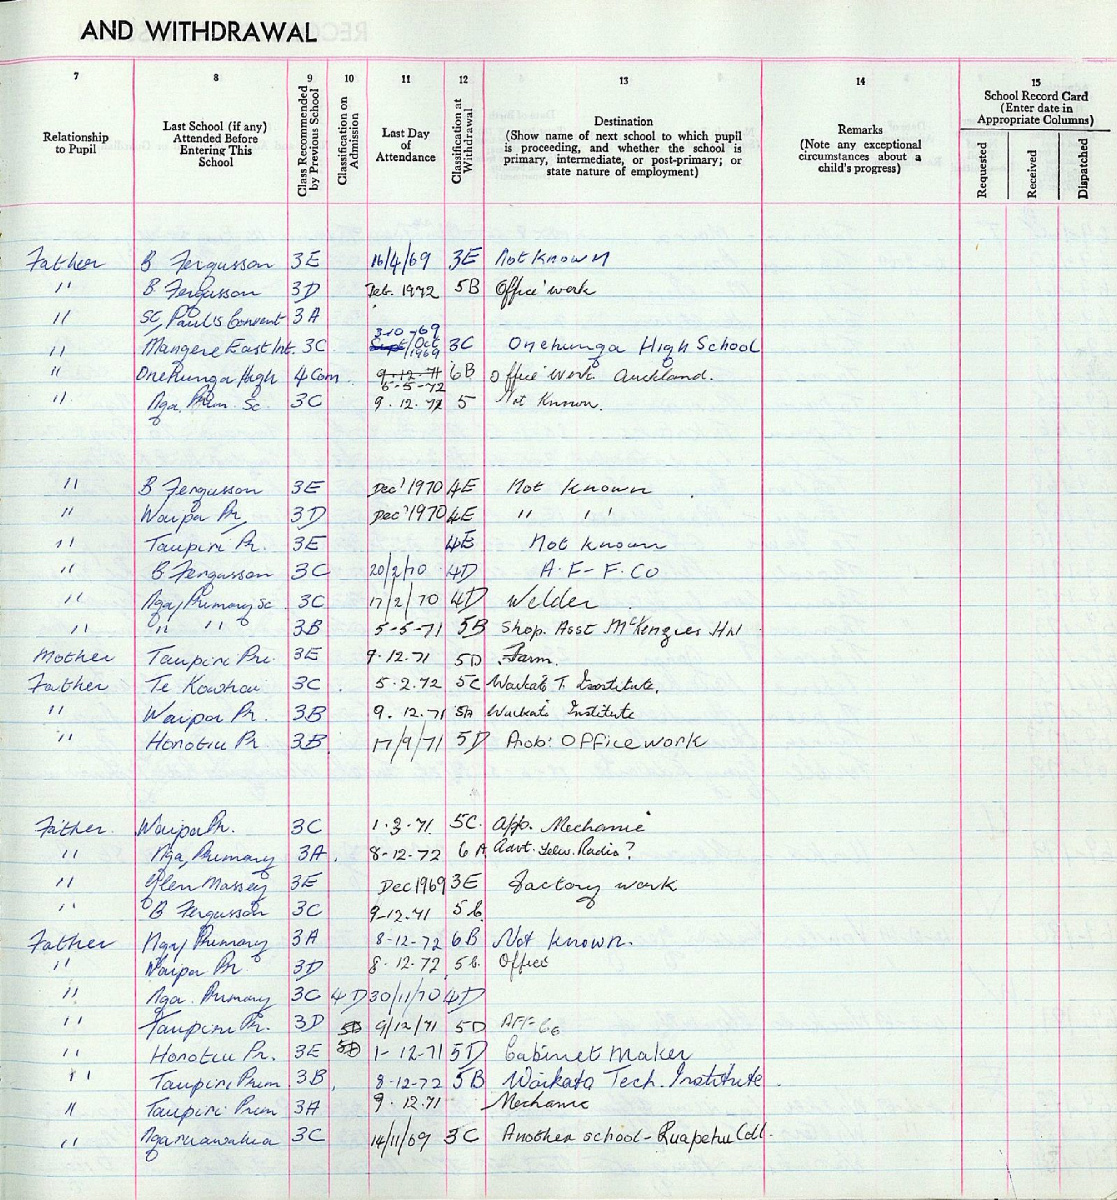 AND WITHDRAWAL
7 8 9 10 11 12 13 14 15
Relationship to Pupil
Last School (if any) Attended Before Entering This School
Class Recommended by Previous School
Classification on Admission
Last Day of Attendance
Classification at Withdrawal
Destination (Show name of next school to which pupil is proceeding, and whether the school is primary, intermediate, or post-primary; or state nature of employment)
Remarks (Note any exceptional circumstances about a child's progress)
School Record Card (Enter date in Appropriate Columns)
Requested
Received
Dispatched
Father B Fergusson 3E 16/4/69 3E Not Known
" B. Fergusson 3D Feb. 1972 5B Office work
" St. Paul's Convent 3A
3-10-69
" Mangere East Int. 3C Sept/Oct 1969 3C Onehunga High School
" Onehunga High 4 Com 9-12-71 6B Office Work. Auckland.
6-5-72
" Nga. Prim. Sc. 3C 9.12.72 5 Not Known.
" B Fergusson 3E Dec' 1970 4E Not known
" Waipa Pr. 3D Dec' 1970 4E " "
" Taupiri Pr. 3E 4E Not known
" B. Fergusson 3C 20/2/70 4D A.F-F.Co
" Nga, Primary Sc 3C 17/2/70 4D Welder
" " " 3B 5-5-71 5B Shop. Asst McKenzies Hn
Mother Taupiri Pri. 3E 9.12.71 5D Farm.
Father Te Kowhai 3C 5.2.72 5C Waikato T. Institute.
" Waipa Pr. 3B 9.12.71 5A Waikato Institute
" Horotiu Pr. 3B 17/9/71 5D Prob: Office work
Father. Waipa Pr. 3C 1.3.71 5C. App. Mechanic
" Nga, Primary 3A. 8-12-72 6A Advt. Telev. Radio?
" Glen Massey 3E Dec 1969 3E Factory work
" B Fergusson 3C 9-12-71 5C.
Father Nga, Primary 3A 8-12-72 6B Not Known.
" Waipa Pr. 3D 8-12.72 5C. Office
" Nga. Primary 3C 4D 30/11/70 4D
" Taupiri Pr. 3D 5D 9/12/71 5D AFF Co
" Horotiu Pr. 3E 5D 1-12-71 5D Cabinet Maker
" Taupiri Prim 3B 8-12-72 5B Waikato Tech. Institute.
" Taupiri Prim 3A 9.12.71 Mechanic
" Ngaruawahia 3C 14/11/69 3C Another school - Ruapehu Coll.